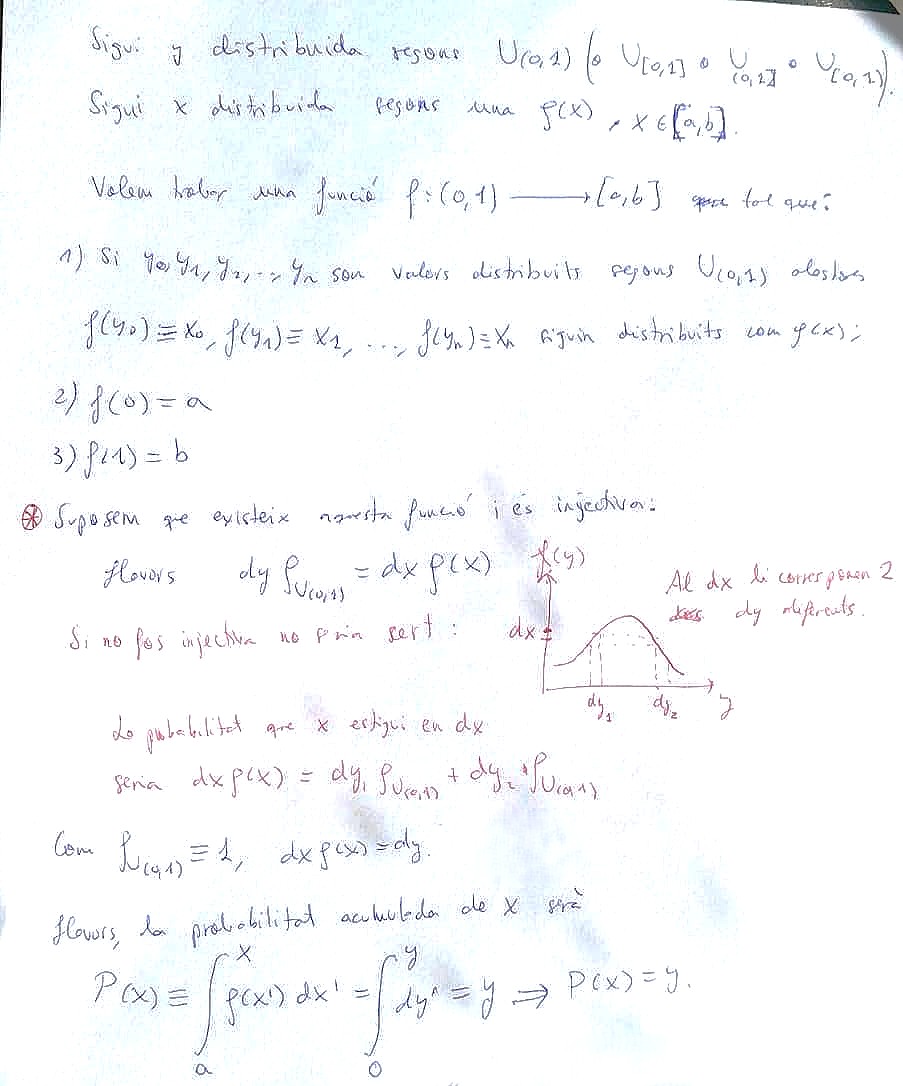 Sigui y distribuida segons U(0,1) (o U[0,1] o U(0,1] o U[0,1)).
Sigui x distribuida segons una ρ(x), x ∈ [a,b].
Volem trobar una funció f: (0,1) ⟶ [a,b] tal que:
1) Si y₀, y₁, y₂, ..., yₙ son valors distribuits segons U(0,1) aleshores
f(y₀) ≡ x₀, f(y₁) ≡ x₁, ..., f(yₙ) ≡ xₙ siguin distribuits com ρ(x);
2) f(0) = a
3) f(1) = b
⊛ Suposem que existeix aquesta funció i és injectiva:
Llavors dy ρU(0,1) = dx ρ(x)
f(y)
Al dx li corresponen 2
dy diferents.
Si no fos injectiva no seria cert:
dx
dy₁ dy₂ y
La probabilitat que x estigui en dx
seria dx ρ(x) = dy₁ ρU(0,1) + dy₂ ρU(0,1)
Com ρU(0,1) ≡ 1, dx ρ(x) = dy.
Llavors, la probabilitat acumulada de x serà
P(x) ≡ ∫ₐˣ ρ(x') dx' = ∫₀ʸ dy' = y ⟹ P(x) = y.